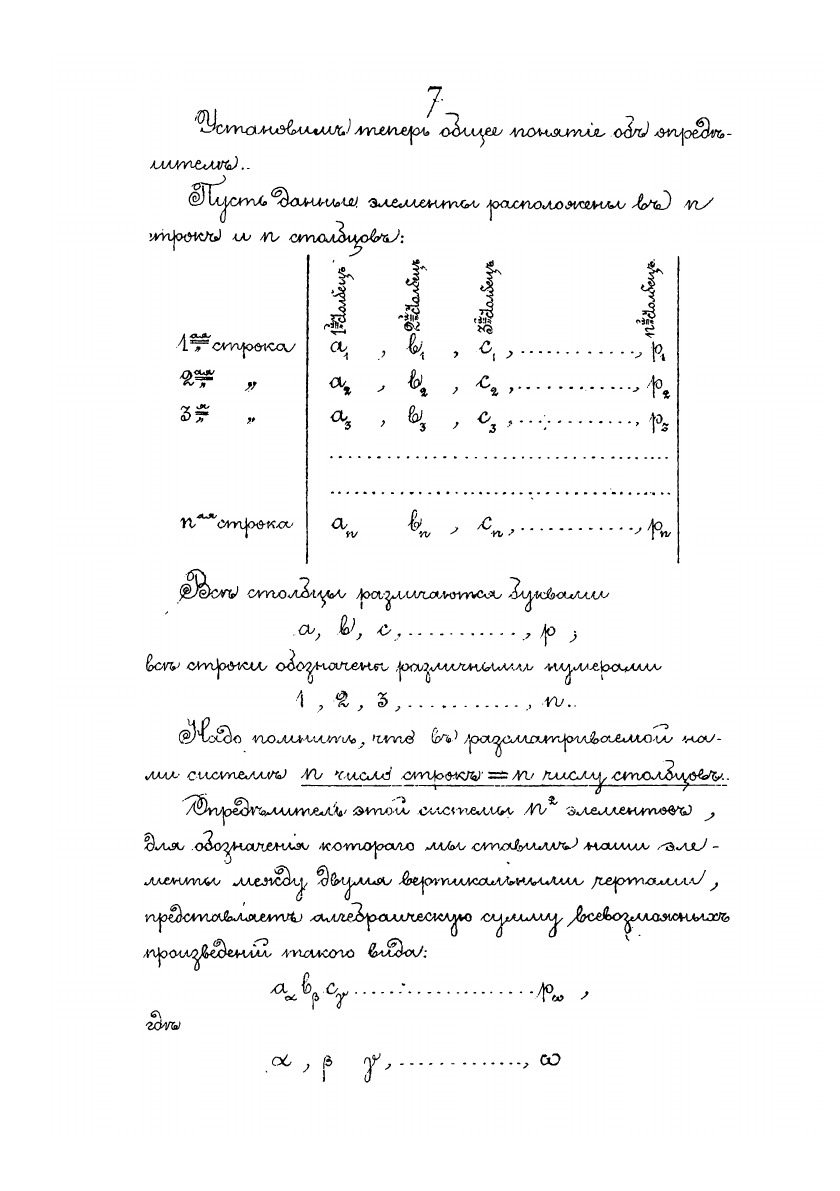 7.
Установимъ теперь общее понятіе объ опредѣ-
лителѣ..
Пусть данные элементы расположены въ n
строкъ и n столбцовъ:
1ый столбецъ 2ой столбецъ 3ій столбецъ nый столбецъ
1ая строка a₁ , b₁ , c₁ , ............, p₁
2ая „ a₂ , b₂ , c₂ , ............, p₂
3я „ a₃ , b₃ , c₃ , ............, p₃
........................................
........................................
nая строка aₙ bₙ , cₙ , ............, pₙ
Всѣ столбцы различаются буквами
a, b, c, ............, p ;
всѣ строки обозначены различными нумерами
1 , 2 , 3, ............, n..
Надо помнить, что въ разсматриваемой на-
ми системѣ n число строкъ = n числу столбцовъ..
Опредѣлитель этой системы n² элементовъ ,
для обозначения котораго мы ставимъ наши эле-
менты между двумя вертикальными чертами ,
представляетъ алгебраическую сумму всевозможныхъ
произведеній такого вида:
a_α b_β c_γ ....................p_ω ,
гдѣ
α , β γ, ............., ω